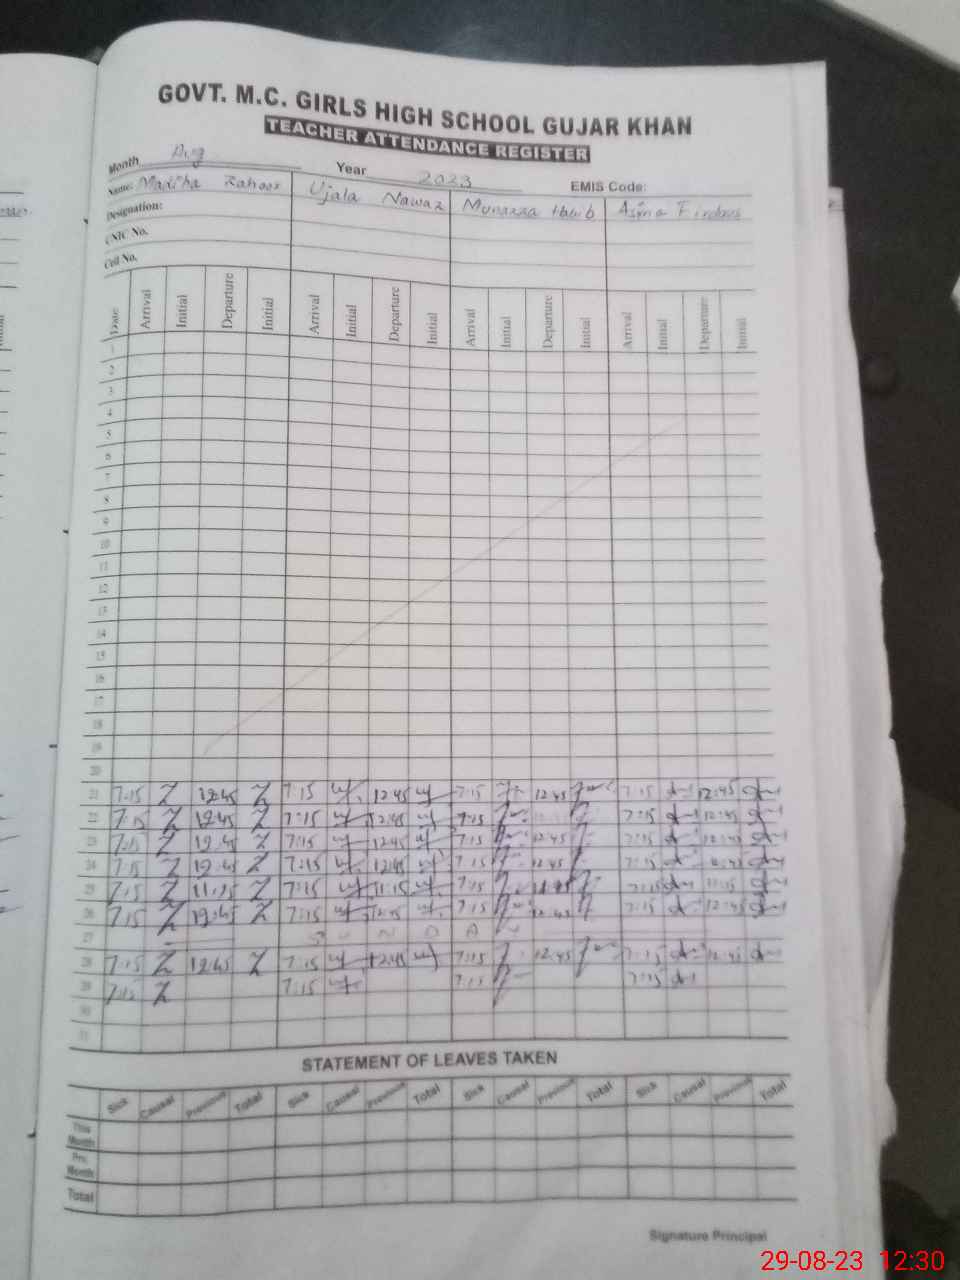 GOVT. M.C. GIRLS HIGH SCHOOL GUJAR KHAN
TEACHER ATTENDANCE REGISTER
Month Aug Year 2023 EMIS Code:
Name: Madiha Ujala Nawaz Munazza Habib Asima Firdous
Designation:
CNIC No.
Cell No.
Date Arrival Initial Departure Initial Arrival Initial Departure Initial Arrival Initial Departure Initial Arrival Initial Departure Initial
1
2
3
4
5
6
7
8
9
10
11
12
13
14
15
16
17
18
19
20
21 7:15 12:45 7:15 12:45 7:15 12:45 7:15 12:45
22 7:15 12:45 7:15 12:45 7:15 7:15 12:45
23 7:15 12:45 7:15 12:45 7:15 12:45 7:15 12:45
24 7:15 12:45 7:15 12:45 7:15 12:45 7:15 12:45
25 7:15 11:15 7:15 11:15 7:15 7:15 11:15
26 7:15 12:45 7:15 12:45 7:15 12:45 7:15 12:45
27 S U N D A Y
28 7:15 12:45 7:15 12:45 7:15 12:45 7:15 12:45
29 7:15 7:15 7:15 7:15
30
31
STATEMENT OF LEAVES TAKEN
Sick Causal Previous Total Sick Causal Previous Total Sick Causal Previous Total Sick Causal Previous Total
This Month
Pre. Month
Total
Signature Principal
29-08-23 12:30